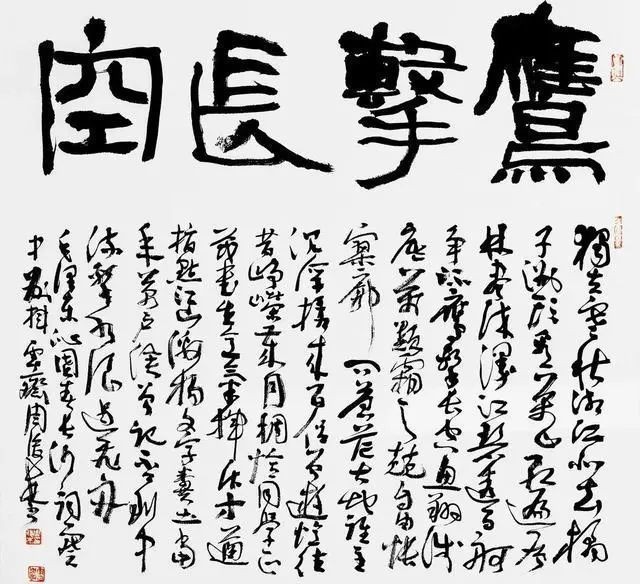 鷹擊長空
獨立寒秋湘江北去橘
子洲頭看萬山紅遍層
林盡染漫江碧透百舸
爭流鷹擊長空魚翔淺
底萬類霜天競自由悵
寥廓問蒼茫大地誰主
沉浮攜來百侶曾遊憶往
昔崢嶸歲月稠恰同學
茂書生意氣揮斥方遒
指點江山激揚文字糞土當
年萬戶侯曾記否到中
流擊水浪遏飛舟
毛澤東沁園春長沙詞
周俊杰